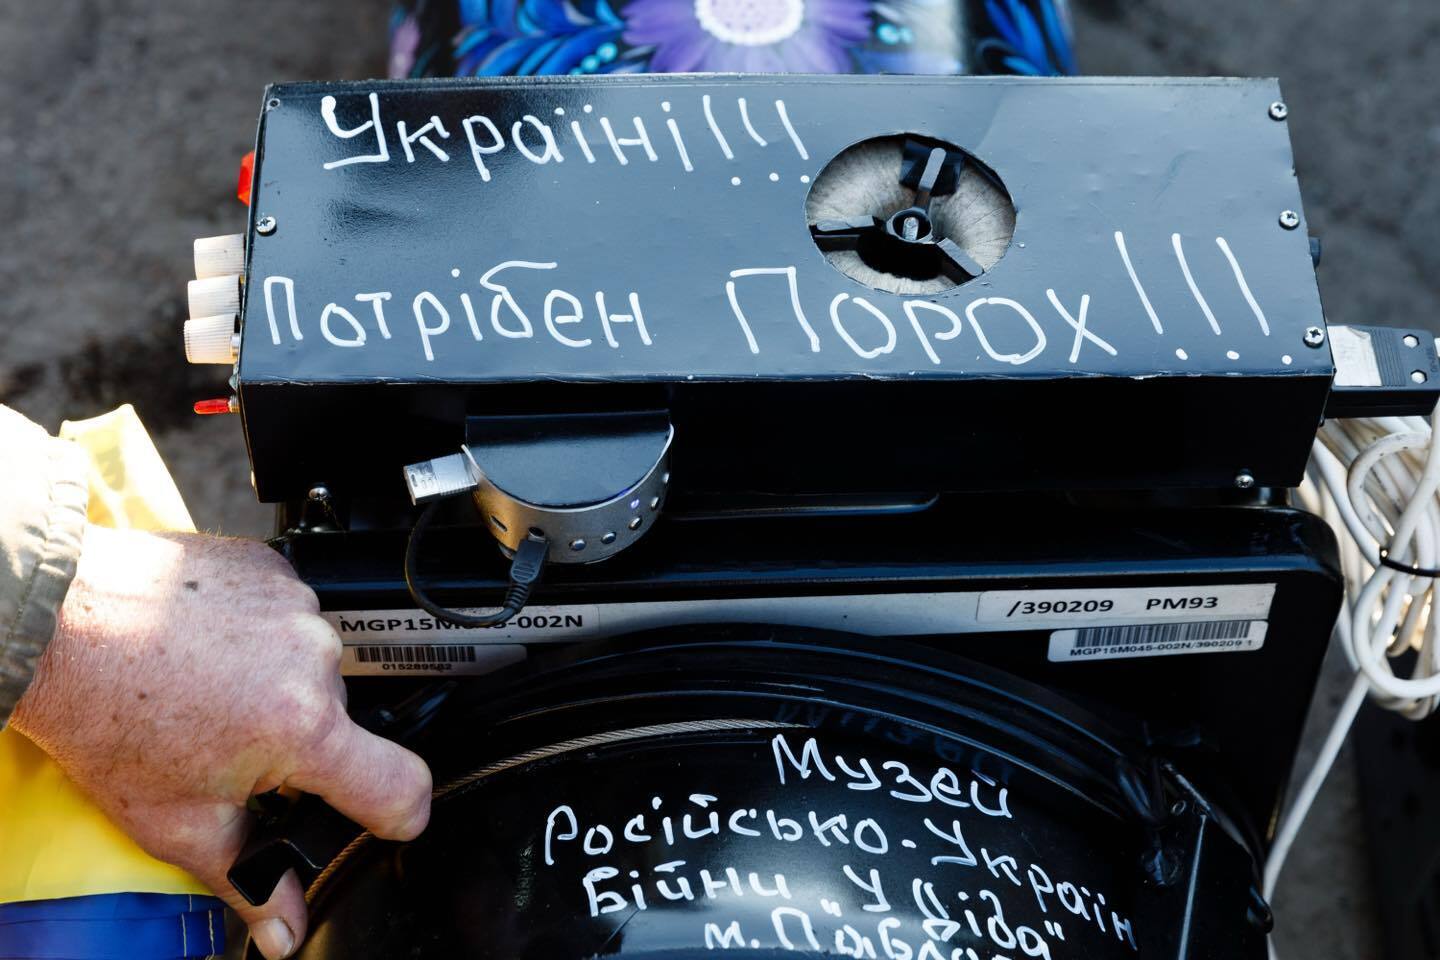 Україні!!!
Потрібен Порох!!!
MGP15M045-002N
015289582
/390209 PM93
MGP15M045-002N/390209 1
Музей
Російсько-Україн
Війни "У Діда"
м.